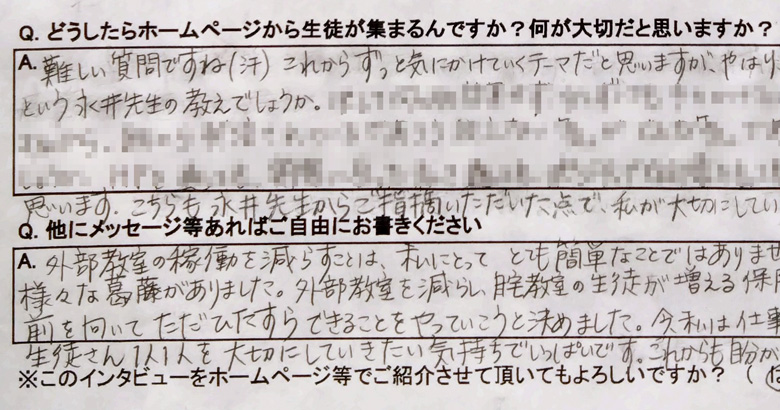 Q. どうしたらホームページから生徒が集まるんですか？何が大切だと思いますか？
A. 難しい質問ですね(汗) これからずっと気にかけていくテーマだと思いますが、やはり
という永井先生の教えでしょうか。
思います。こちらも永井先生からご指摘いただいた点で、私が大切にしてい
Q. 他にメッセージ等あればご自由にお書きください
A. 外部教室の稼働を減らすことは、私にとって とても簡単なことではありませ
様々な葛藤がありました。外部教室を減らし、自宅教室の生徒が増える保
前を向いて ただひたすらできることをやっていこうと決めました。今私は仕事
生徒さん1人1人を大切にしていきたい気持ちでいっぱいです。これからも自分か
※このインタビューをホームページ等でご紹介させて頂いてもよろしいですか？ (